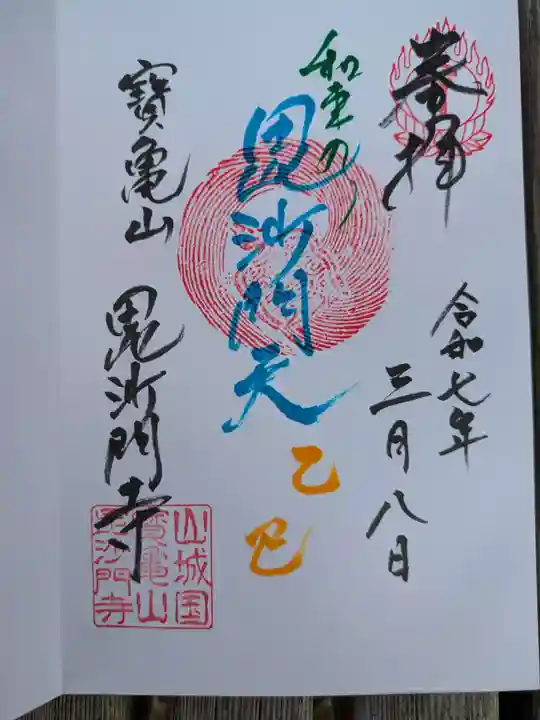 奉拝
令和七年
三月八日
毘沙門天
乙
巳
寶亀山
毘沙門寺
山城国
寶亀山
毘沙門寺